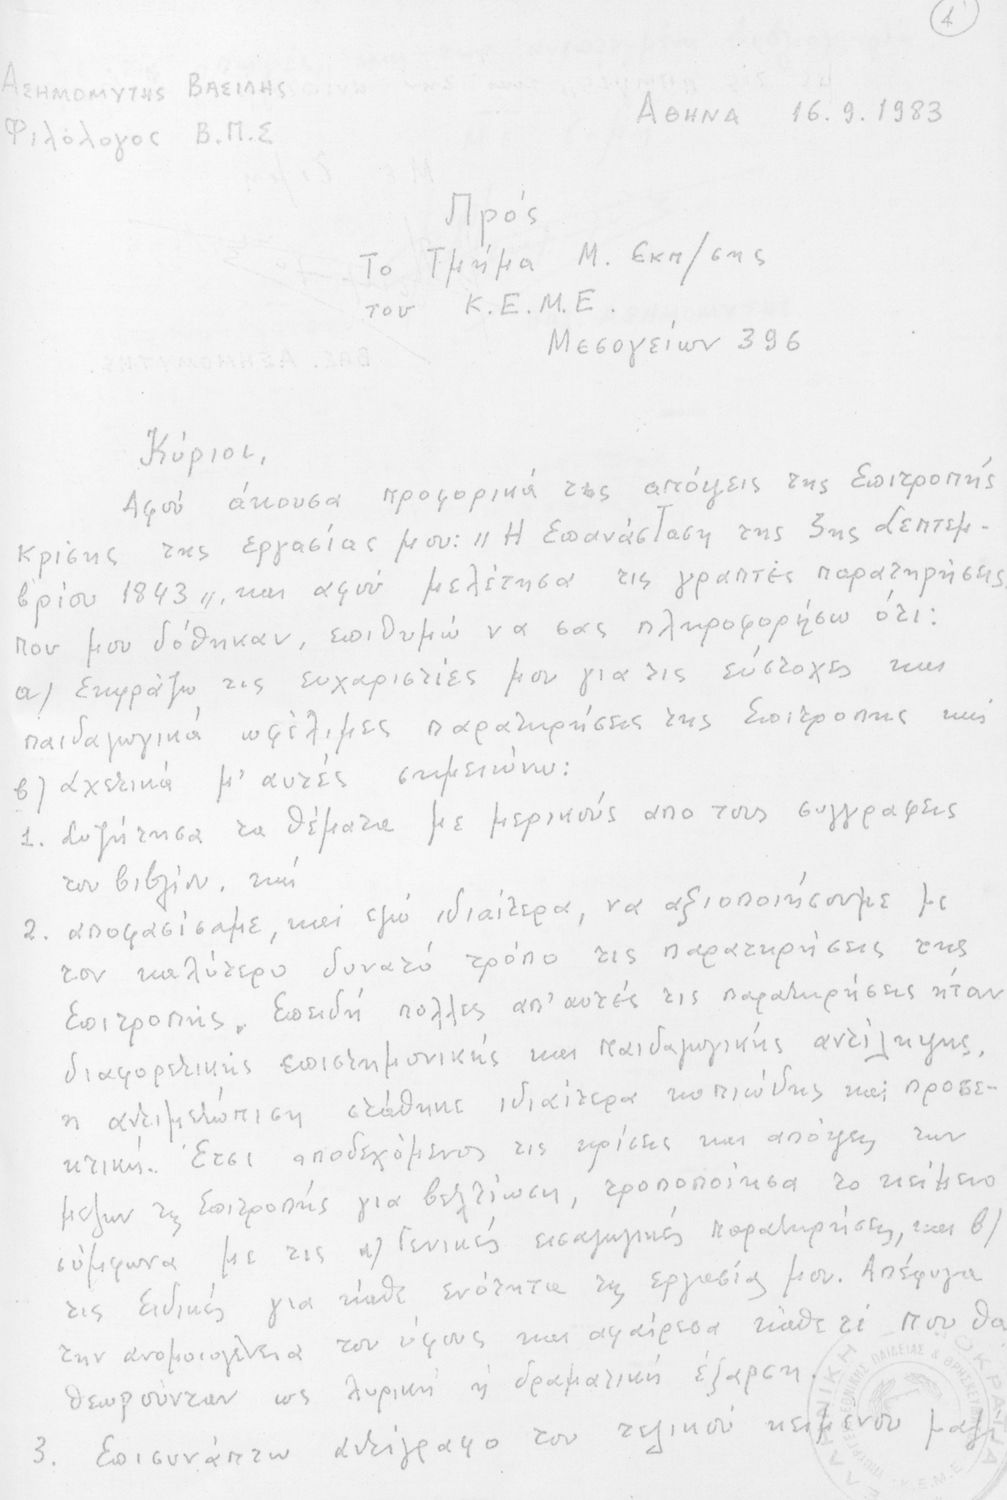 1
Ασημομύτης Βασίλης
Φιλόλογος Β.Π.Σ
Αθήνα 16.9.1983
Πρός
Το Τμήμα Μ. Εκπ/σης
του Κ.Ε.Μ.Ε.
Μεσογείων 396
Κύριοι,
Αφού άκουσα προφορικά τις απόψεις της Επιτροπής
κρίσης της εργασίας μου: "Η Επανάσταση της 3ης Σεπτεμ-
βρίου 1843", και αφού μελέτησα τις γραπτές παρατηρήσεις
που μου δόθηκαν, επιθυμώ να σας πληροφορήσω ότι:
α) Εκφράζω τις ευχαριστίες μου για τις εύστοχες και
παιδαγωγικά ωφέλιμες παρατηρήσεις της Επιτροπής και
β) Σχετικά μ' αυτές σημειώνω:
1. Συζήτησα τα θέματα με μερικούς απο τους συγγραφείς
του βιβλίου, και
2. αποφασίσαμε, και εγώ ιδιαίτερα, να αξιοποιήσουμε με
τον καλύτερο δυνατό τρόπο τις παρατηρήσεις της
Επιτροπής. Επειδή πολλές απ' αυτές τις παρατηρήσεις ήταν
διαφορετικής επιστημονικής και παιδαγωγικής αντίληψης,
η αντιμετώπιση στάθηκε ιδιαίτερα κοπιώδης και προσε-
κτική. Έτσι αποδεχόμενος τις κρίσεις και απόψεις των
μελών της Επιτροπής για βελτίωση, τροποποίησα το κείμενο
σύμφωνα με τις α) Γενικές εισαγωγικές παρατηρήσεις, και β)
τις Ειδικές για κάθε ενότητα της εργασίας μου. Απέφυγα
την ανομοιογένεια του ύφους και αφαίρεσα κάθε τί που θα
θεωρούνταν ως λυρική ή δραματική έξαρση.
3. Επισυνάπτω αντίγραφο του τελικού κειμένου μαζί